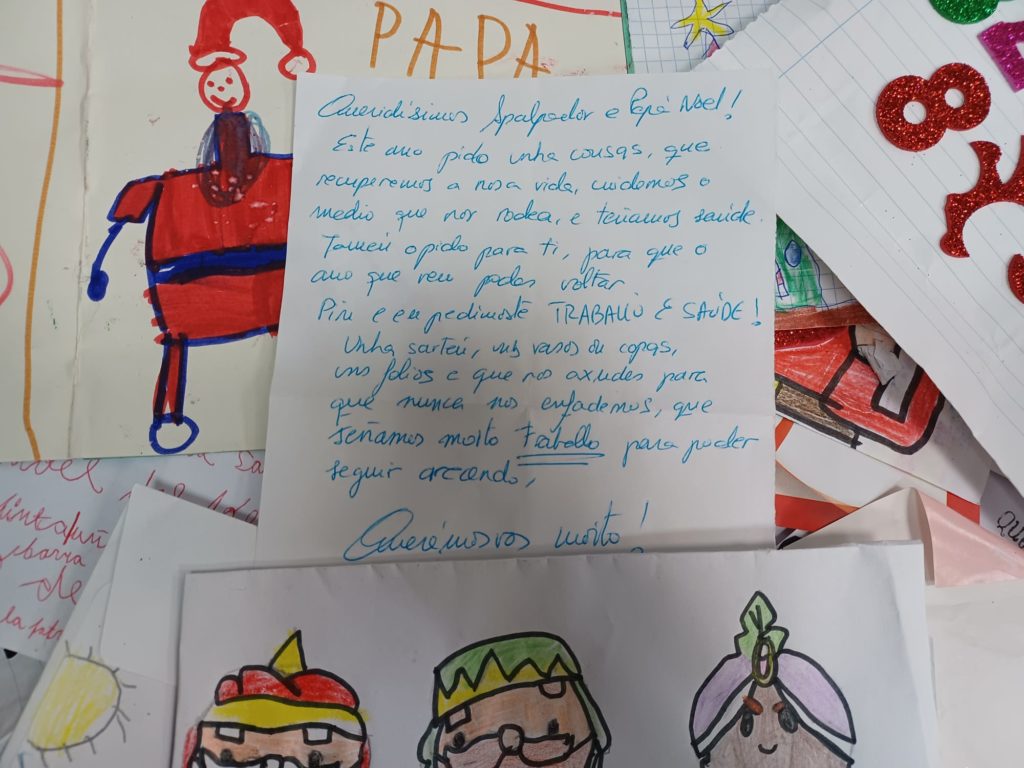 PAPA
Queridísimos Apalpador e Papá Noel!
Este ano pido unha cousas, que
recuperemos a nosa vida, cuidemos o
medio que nos rodea, e teñamos saúde.
Tamén o pido para ti, para que o
ano que ven podas voltar.
Piri e eu pedimoste TRABALLO E SAÚDE!
Unha sartén, uns vasos de copas,
uns folios e que nos axudes para
que nunca nos enfademos, que
teñamos moito traballo para poder
seguir crecendo,
Querémosvos moito!
de
8